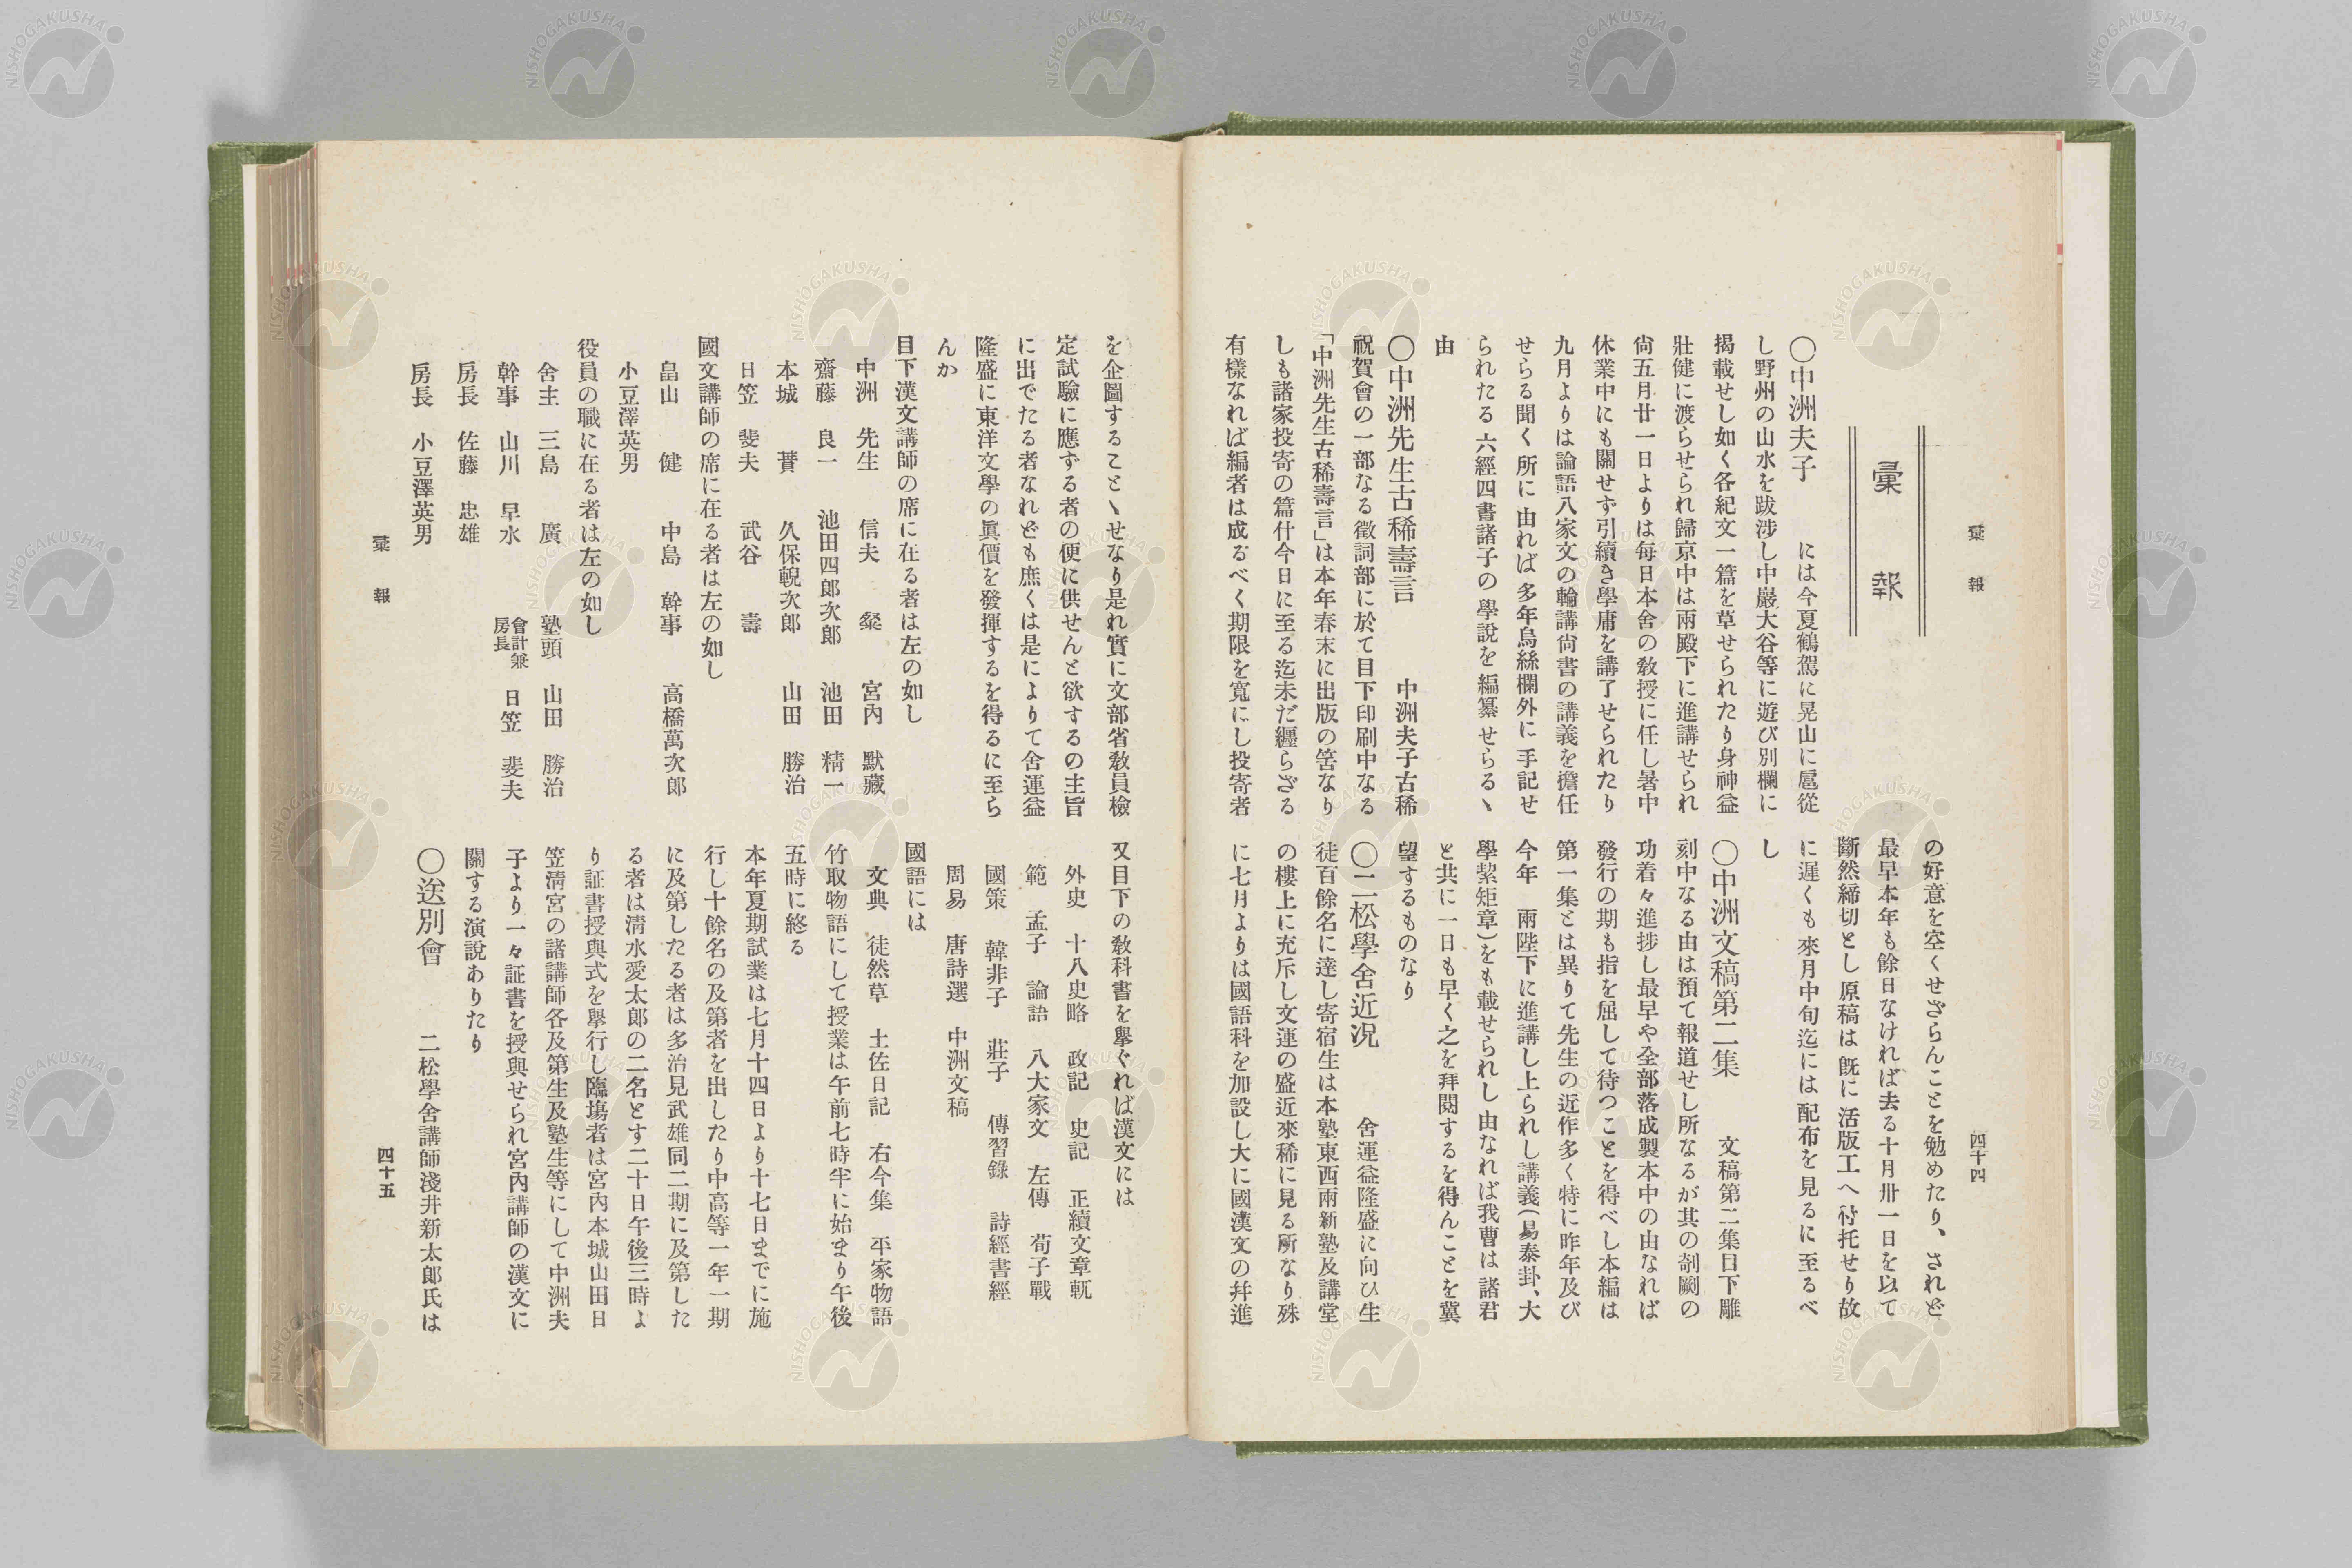 彙報
四十四
彙報
〇中洲夫子　には今夏鶴駕に晃山に扈從
し野州の山水を跋渉し中巖大谷等に遊び別欄に
揭載せし如く各紀文一篇を草せられたり身神益
壯健に渡らせられ歸京中は兩殿下に進講せられ
尙五月廿一日よりは每日本舍の敎授に任し暑中
休業中にも關せず引續き學庸を講了せられたり
九月よりは論語八家文の輪講尙書の講義を擔任
せらる聞く所に由れば多年烏絲欄外に手記せ
られたる六經四書諸子の學說を編纂せらるヽ
由
〇中洲先生古稀壽言　中洲夫子古稀
祝賀會の一部なる徵詞部に於て目下印刷中なる
「中洲先生古稀壽言」は本年春末に出版の筈なり
しも諸家投寄の篇什今日に至る迄未だ纒らざる
有樣なれば編者は成るべく期限を寬にし投寄者
の好意を空くせざらんことを勉めたり、されど
最早本年も餘日なければ去る十月卅一日を以て
斷然締切とし原稿は旣に活版工へ付托せり故
に遲くも來月中旬迄には配布を見るに至るべ
し
〇中洲文稿第二集　文稿第二集目下雕
刻中なる由は預て報道せし所なるが其の剞劂の
功着々進捗し最早や全部落成製本中の由なれば
發行の期も指を屈して待つことを得べし本編は
第一集とは異りて先生の近作多く特に昨年及び
今年　兩陛下に進講し上られし講義(易泰卦、大
學絜矩章)をも載せられし由なれば我曹は諸君
と共に一日も早く之を拜閱するを得んことを冀
望するものなり
〇二松學舍近況　舍運益隆盛に向ひ生
徒百餘名に達し寄宿生は本塾東西兩新塾及講堂
の樓上に充斥し文運の盛近來稀に見る所なり殊
に七月よりは國語科を加設し大に國漢文の幷進
を企圖することヽせなり是れ實に文部省敎員檢
定試驗に應ずる者の便に供せんと欲するの主旨
に出でたる者なれども庶くは是によりて舍運益
隆盛に東洋文學の眞價を發揮するを得るに至ら
んか
目下漢文講師の席に在る者は左の如し
中洲　先生　信夫　粲　宮內　默藏
齋藤　良一　池田四郎次郎　池田　精一
本城　蕡　久保輗次郎　山田　勝治
日笠　斐夫　武谷　壽
國文講師の席に在る者は左の如し
畠山　健　中島　幹事　高橋萬次郎
小豆澤英男
役員の職に在る者は左の如し
舍主　三島　廣　塾頭　山田　勝治
幹事　山川　早水　會計兼房長　日笠　斐夫
房長　佐藤　忠雄
房長　小豆澤英男
又目下の敎科書を擧ぐれば漢文には
外史　十八史略　政記　史記　正續文章軌
範　孟子　論語　八大家文　左傳　荀子戰
國策　韓非子　莊子　傳習錄　詩經書經
周易　唐詩選　中洲文稿
國語には
文典　徒然草　土佐日記　右今集　平家物語
竹取物語にして授業は午前七時半に始まり午後
五時に終る
本年夏期試業は七月十四日より十七日までに施
行し十餘名の及第者を出したり中高等一年一期
に及第したる者は多治見武雄同二期に及第した
る者は淸水愛太郎の二名とす二十日午後三時よ
り証書授與式を擧行し臨塲者は宮內本城山田日
笠淸宮の諸講師各及第生及塾生等にして中洲夫
子より一々証書を授與せられ宮內講師の漢文に
關する演說ありたり
〇送別會　二松學舍講師淺井新太郎氏は
彙報
四十五
NISHOGAKUSHA